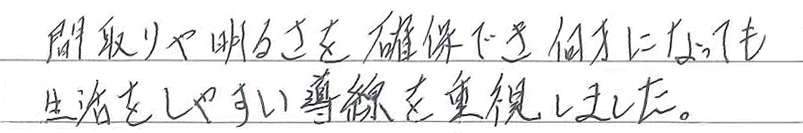 間取りや明るさを確保でき何才になっても
生活をしやすい導線を重視しました。